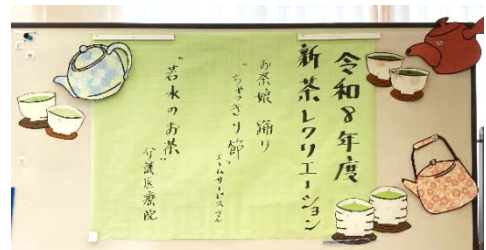 令和8年度
新茶レクリエーション
お茶娘 踊り
"ちゃっきり節"
エームサービスさん
"若水のお茶"
介護医療院